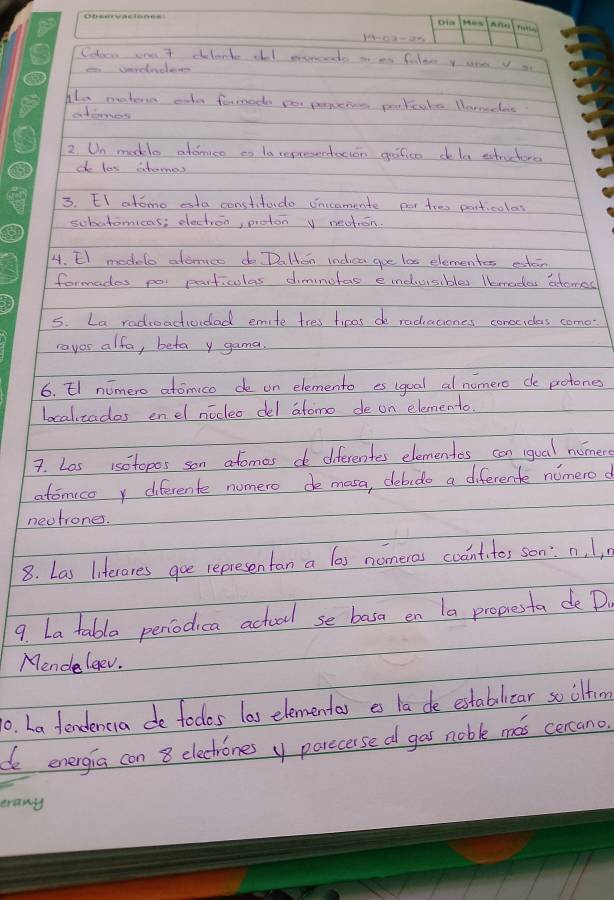 Observaciones:
Día Mes Año Folio
19-02-25
Coloca una f delante del enunciado si es falso y una V si
es verdadero
1 La materia esta formada por pequeñas particulas llamadas
atomos
2. Un modelo atómico es la representación gráfica de la estructura
de los átomos
3. El atomo esta constituido únicamente por tres particolas
subatómicas; electrón, protón y neutrón.
4. El modelo atómico de Daltón indica que los elementos están
formados por particolas diminutas e indivisibles llamadas átomos
5. La radioactividad emite tres tipos de radiaciones conocidas como:
rayos alfa, beta y gama.
6. El número atómico de un elemento es igual al número de protones
localizados en el núcleo del átomo de un elemento.
7. Los isótopos son atomos de diferentes elementos con igual número
atómico y diferente numero de masa, debido a diferente número d
neutrones.
8. Las literares que representan a los números cuántitos son: n, l, m
9. La tabla periódica actual se basa en la propiesta de D
Mendeleev.
10. La tendencia de todos los elementos es la de estabilizar su últim
de energía con 8 electrónes y parecerse al gas noble más cercano.
erany